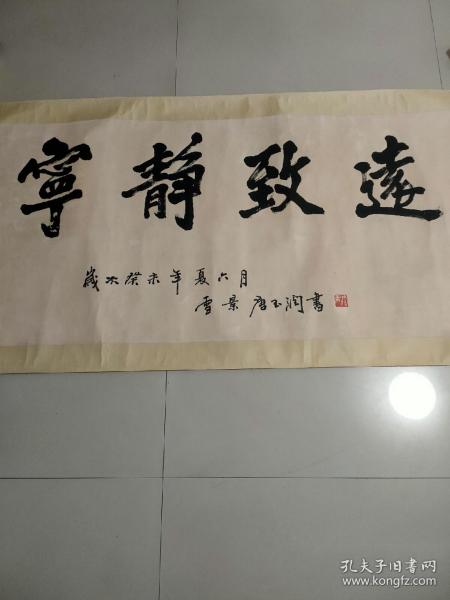 寧靜致遠
歲次癸未年夏六月
雪景 唐玉潤書
孔夫子旧书网
www.kongfz.com